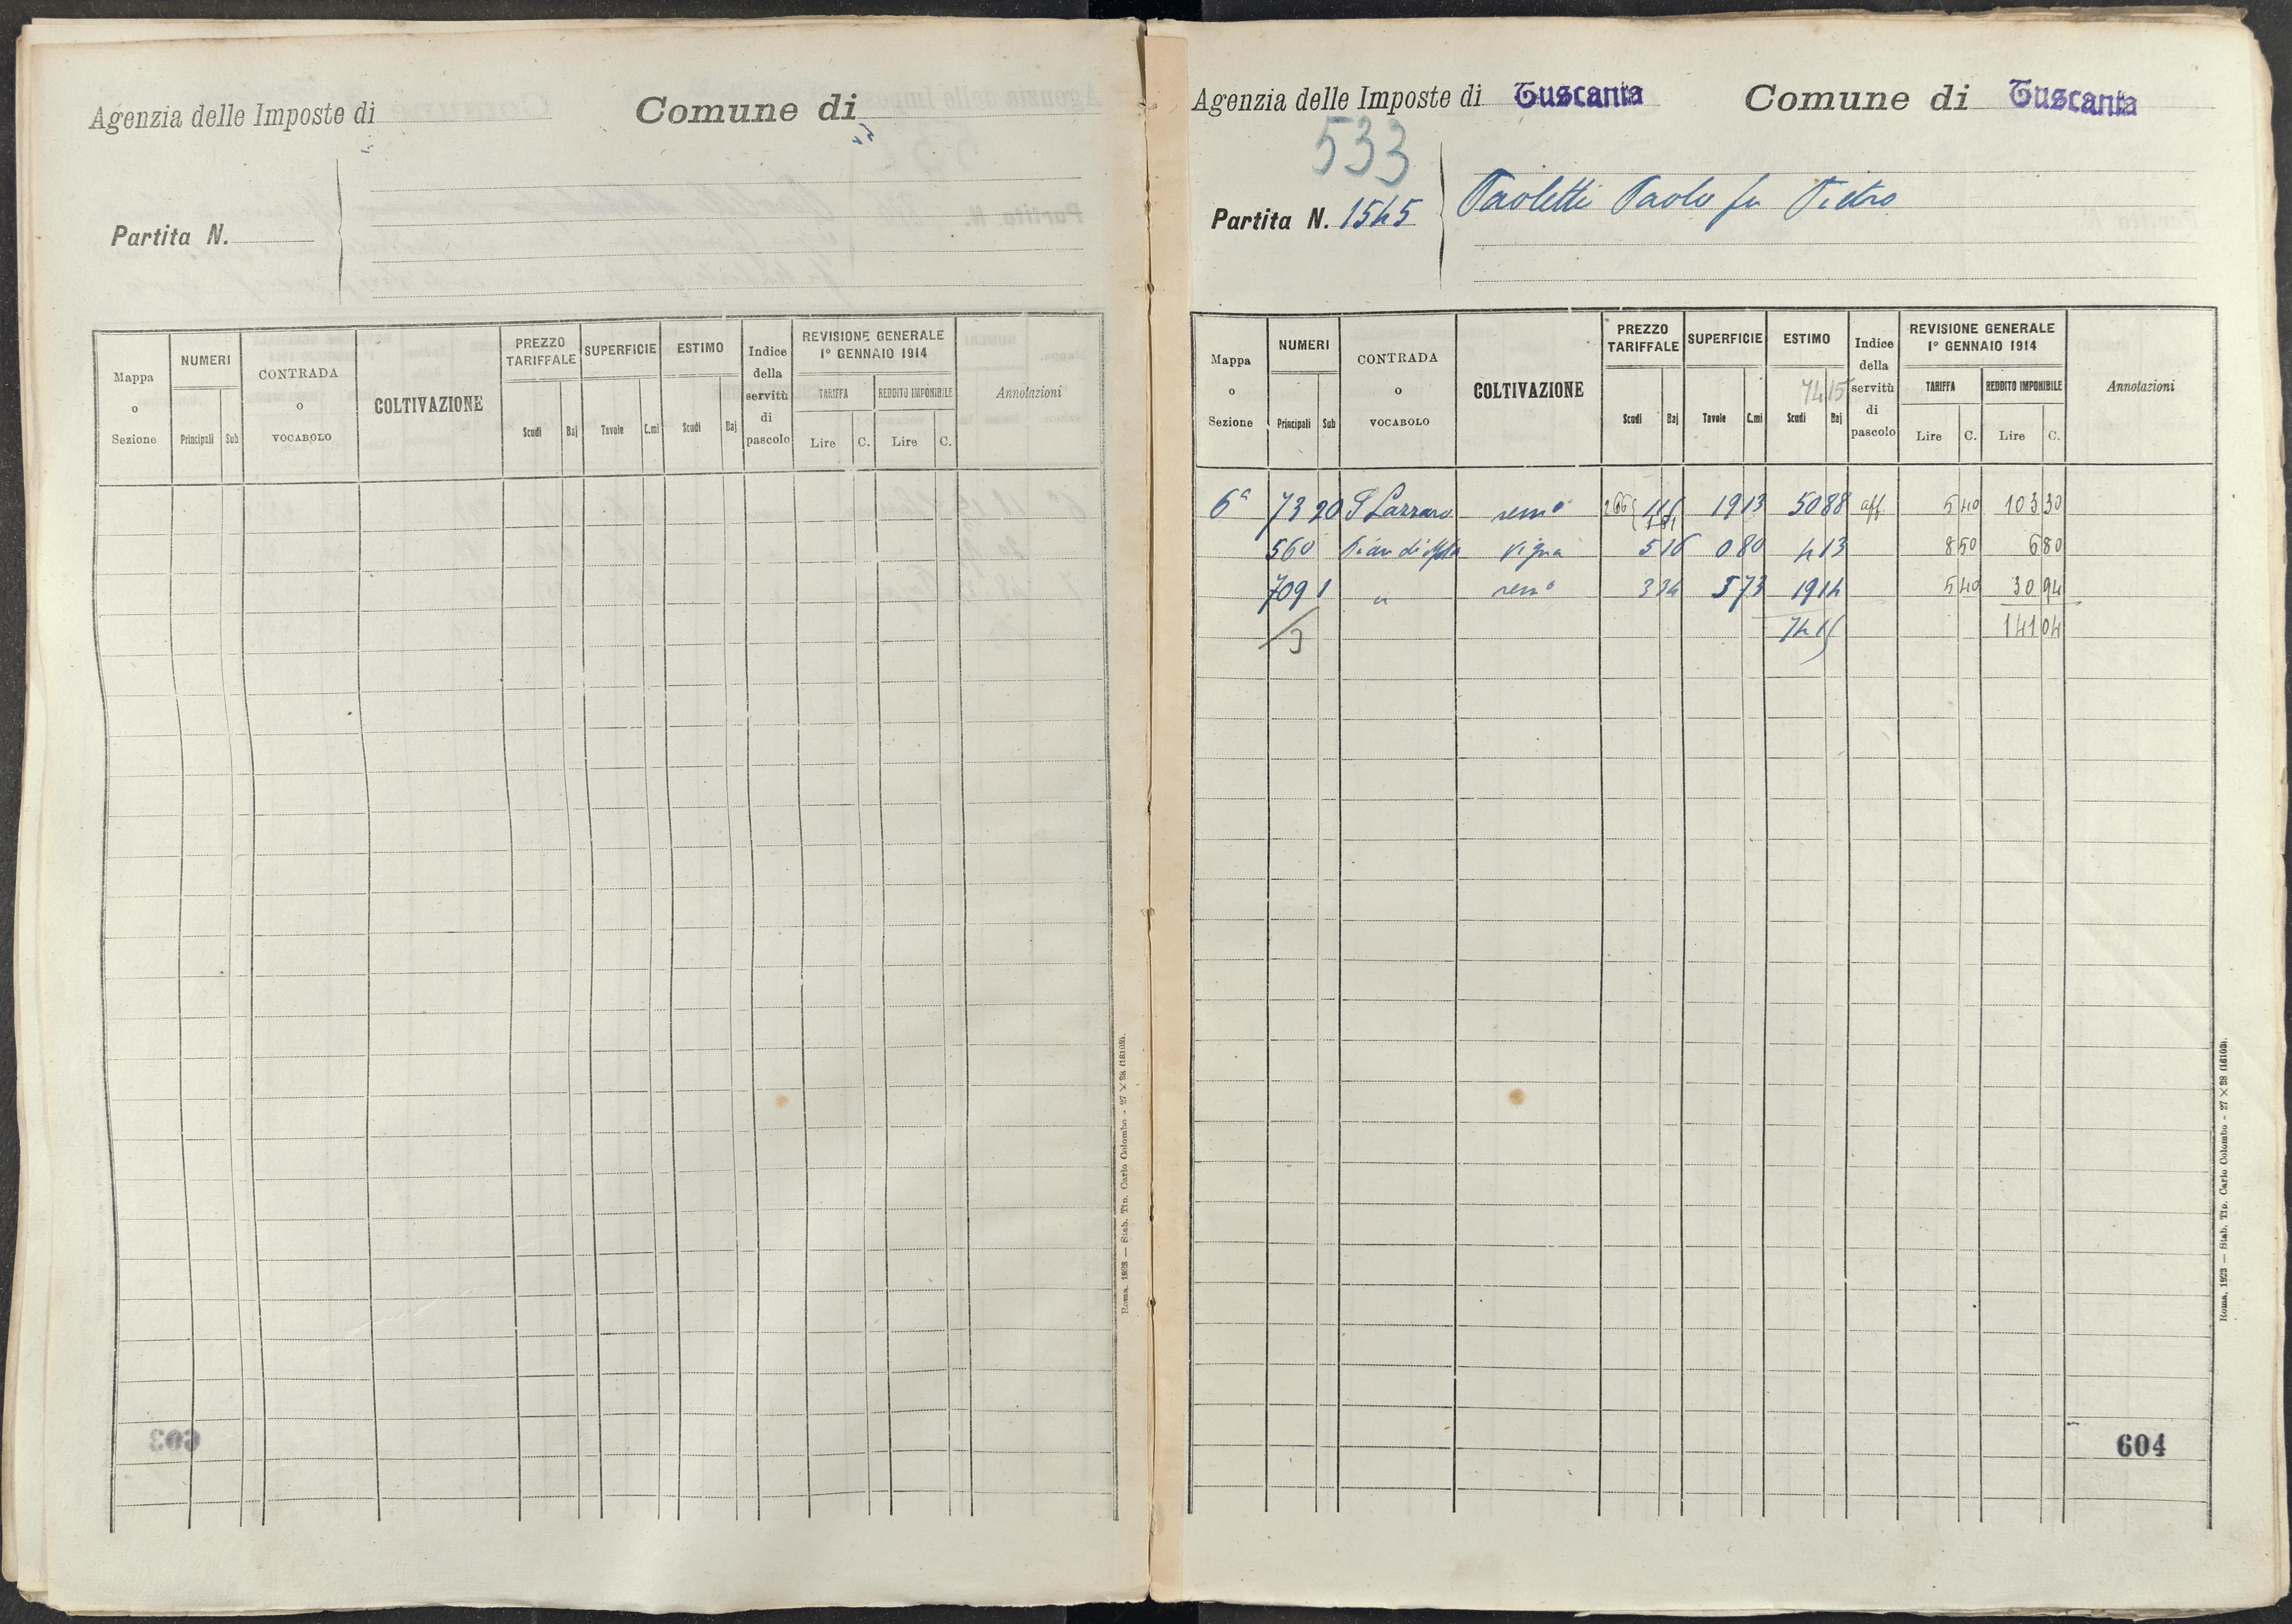 Agenzia delle Imposte di Comune di
Partita N.
Mappa o Sezione NUMERI Principali Sub CONTRADA o VOCABOLO COLTIVAZIONE PREZZO TARIFFALE Scudi Baj SUPERFICIE Tavole C.mi ESTIMO Scudi Baj Indice della servitù di pascolo REVISIONE GENERALE 1° GENNAIO 1914 TARIFFA Lire C. REDDITO IMPONIBILE Lire C. Annotazioni
Roma, 1923 — Stab. Tip. Carlo Colombo - 27 × 38 (16103).
603
Agenzia delle Imposte di Tuscania Comune di Tuscania
533
Partita N. 1545 Paoletti Paolo fu Pietro
Mappa o Sezione NUMERI Principali Sub CONTRADA o VOCABOLO COLTIVAZIONE PREZZO TARIFFALE Scudi Baj SUPERFICIE Tavole C.mi ESTIMO 74 15 Scudi Baj Indice della servitù di pascolo REVISIONE GENERALE 1° GENNAIO 1914 TARIFFA Lire C. REDDITO IMPONIBILE Lire C. Annotazioni
6a 73 20 S Lazzaro sem° 266 19 13 50 88 aff. 5 40 103 30
560 Pian di Vigna 5 16 0 80 4 13 8 50 6 80
709 1 " sem° 3 34 5 73 19 14 5 40 30 94
3 74 15 141 04
Roma, 1923 — Stab. Tip. Carlo Colombo - 27 × 38 (16103).
604